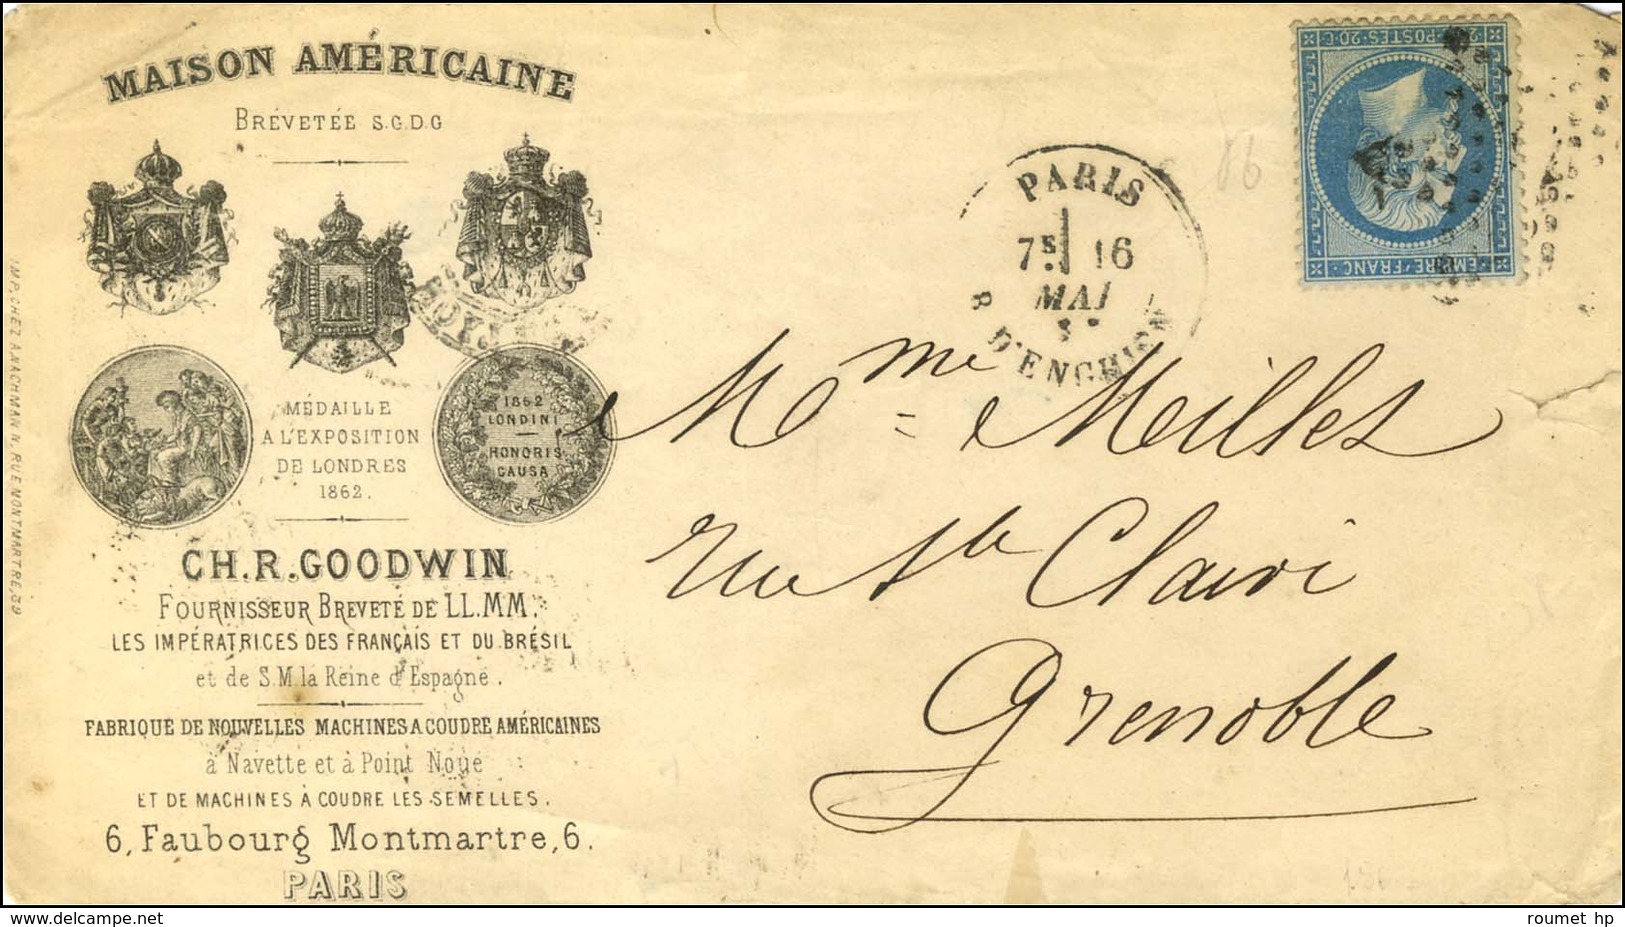 MAISON AMÉRICAINE
BRÉVETÉE S.G.D.G
MÉDAILLE
A L'EXPOSITION
DE LONDRES
1862.
1862
LONDINI
HONORIS
CAUSA
CH. R. GOODWIN
FOURNISSEUR BREVETÉ DE LL.MM.
LES IMPÉRATRICES DES FRANÇAIS ET DU BRÉSIL
et de S.M. la Reine d'Espagne.
FABRIQUE DE NOUVELLES MACHINES A COUDRE AMÉRICAINES
à Navette et à Point Noué
ET DE MACHINES À COUDRE LES SEMELLES.
6, Faubourg Montmartre, 6.
PARIS
PARIS
7E 16
MAI
R. D'ENGHIEN
POSTES 20 C
EMPIRE FRANC
Mme Meilles
rue Ste Claire
Grenoble
roumet hp